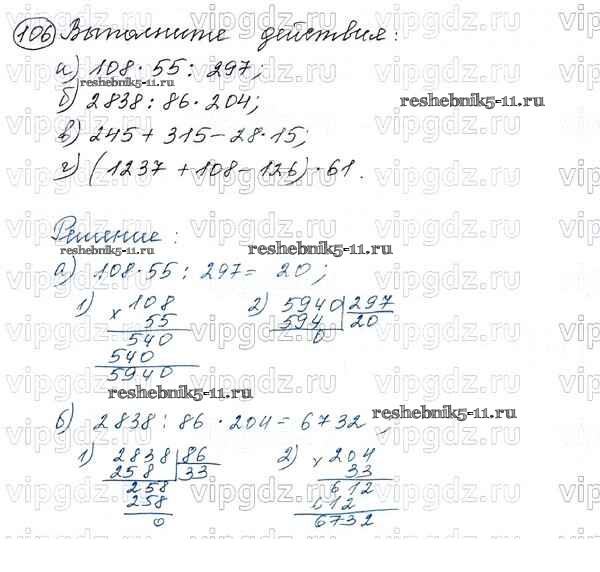 106 Выполните действия:
а) 108 · 55 : 297;
reshebnik5-11.ru
б) 2838 : 86 · 204;
reshebnik5-11.ru
в) 245 + 315 - 28 · 15;
г) (1237 + 108 - 126) · 61.
Решение:
reshebnik5-11.ru
reshebnik5-11.ru
а) 108 · 55 : 297 = 20;
1) 108 2) 5940 297
× 55 594 20
540 0
540
5940
reshebnik5-11.ru
б) 2838 : 86 · 204 = 6732
reshebnik5-11.ru
1) 2838 86 2) × 204
258 33 33
258 612
258 612
0 6732
vipgdz.ru